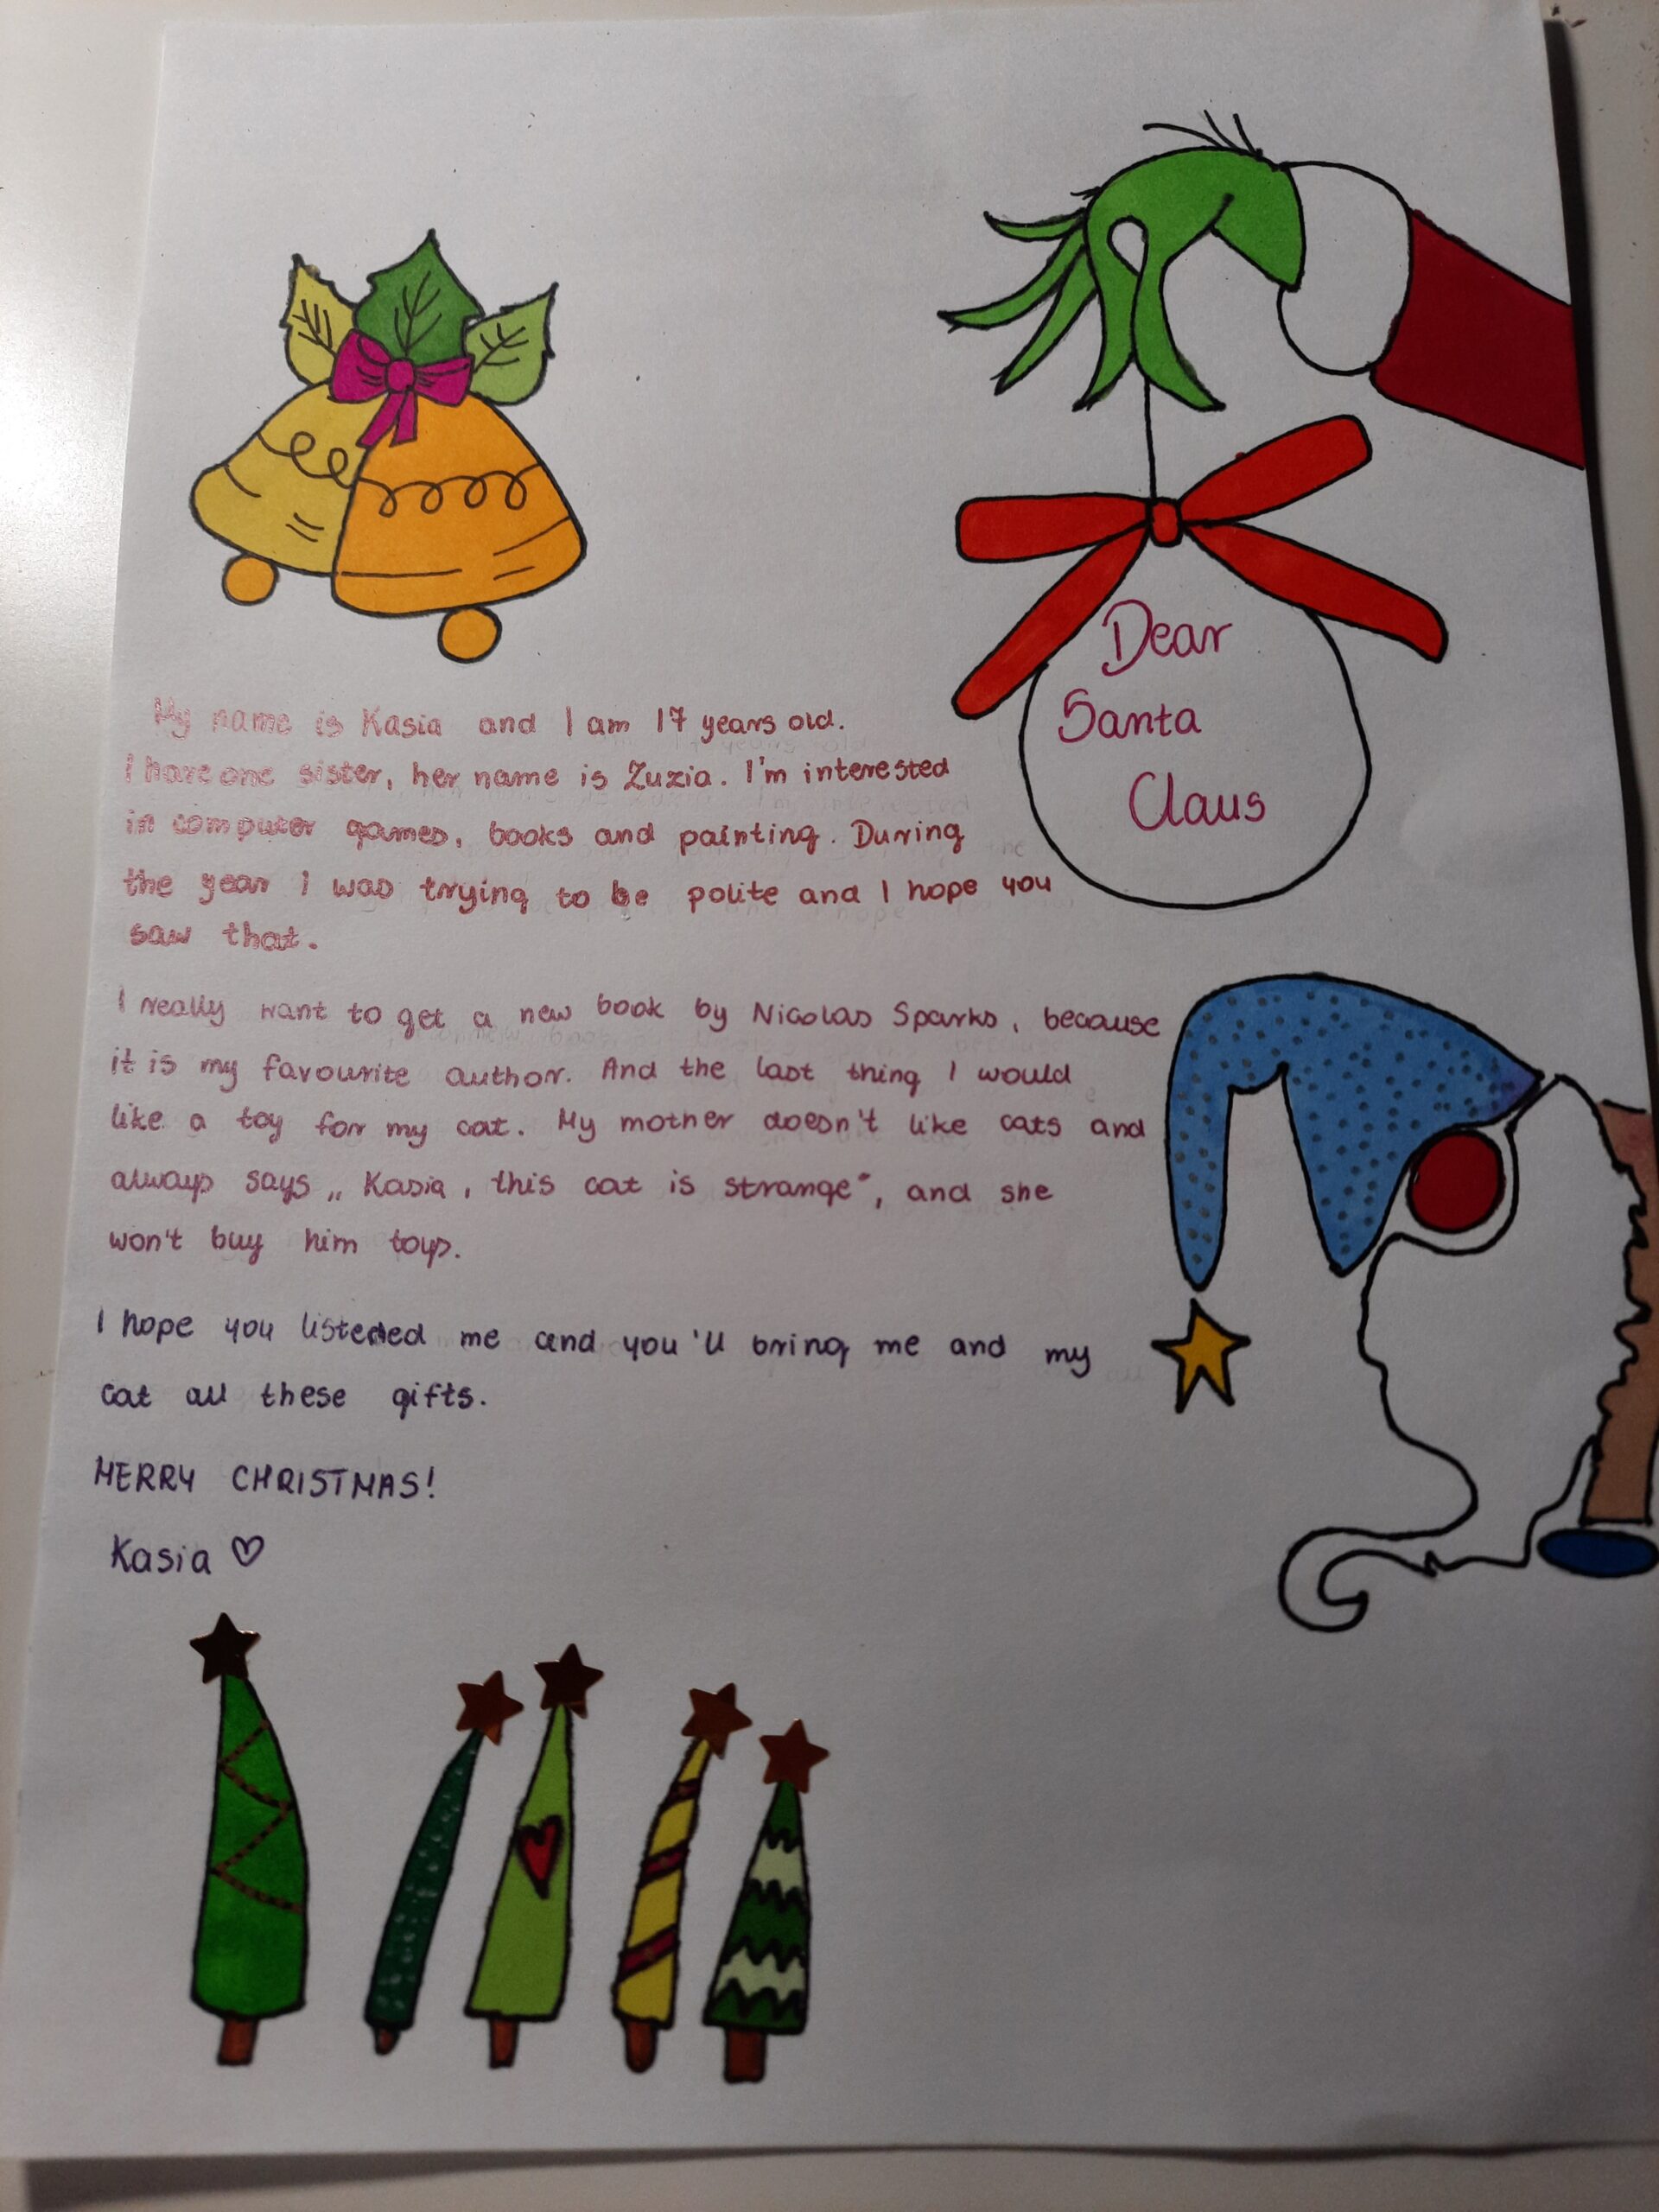 Dear
Santa
Claus
My name is Kasia and I am 17 years old.
I have one sister, her name is Zuzia. I'm interested
in computer games, books and painting. During
the year I was trying to be polite and I hope you
saw that.
I really want to get a new book by Nicolas Sparks, because
it is my favourite author. And the last thing I would
like a toy for my cat. My mother doesn't like cats and
always says „Kasia, this cat is strange", and she
won't buy him toys.
I hope you listened me and you'll bring me and my
cat all these gifts.
MERRY CHRISTMAS!
Kasia ♡